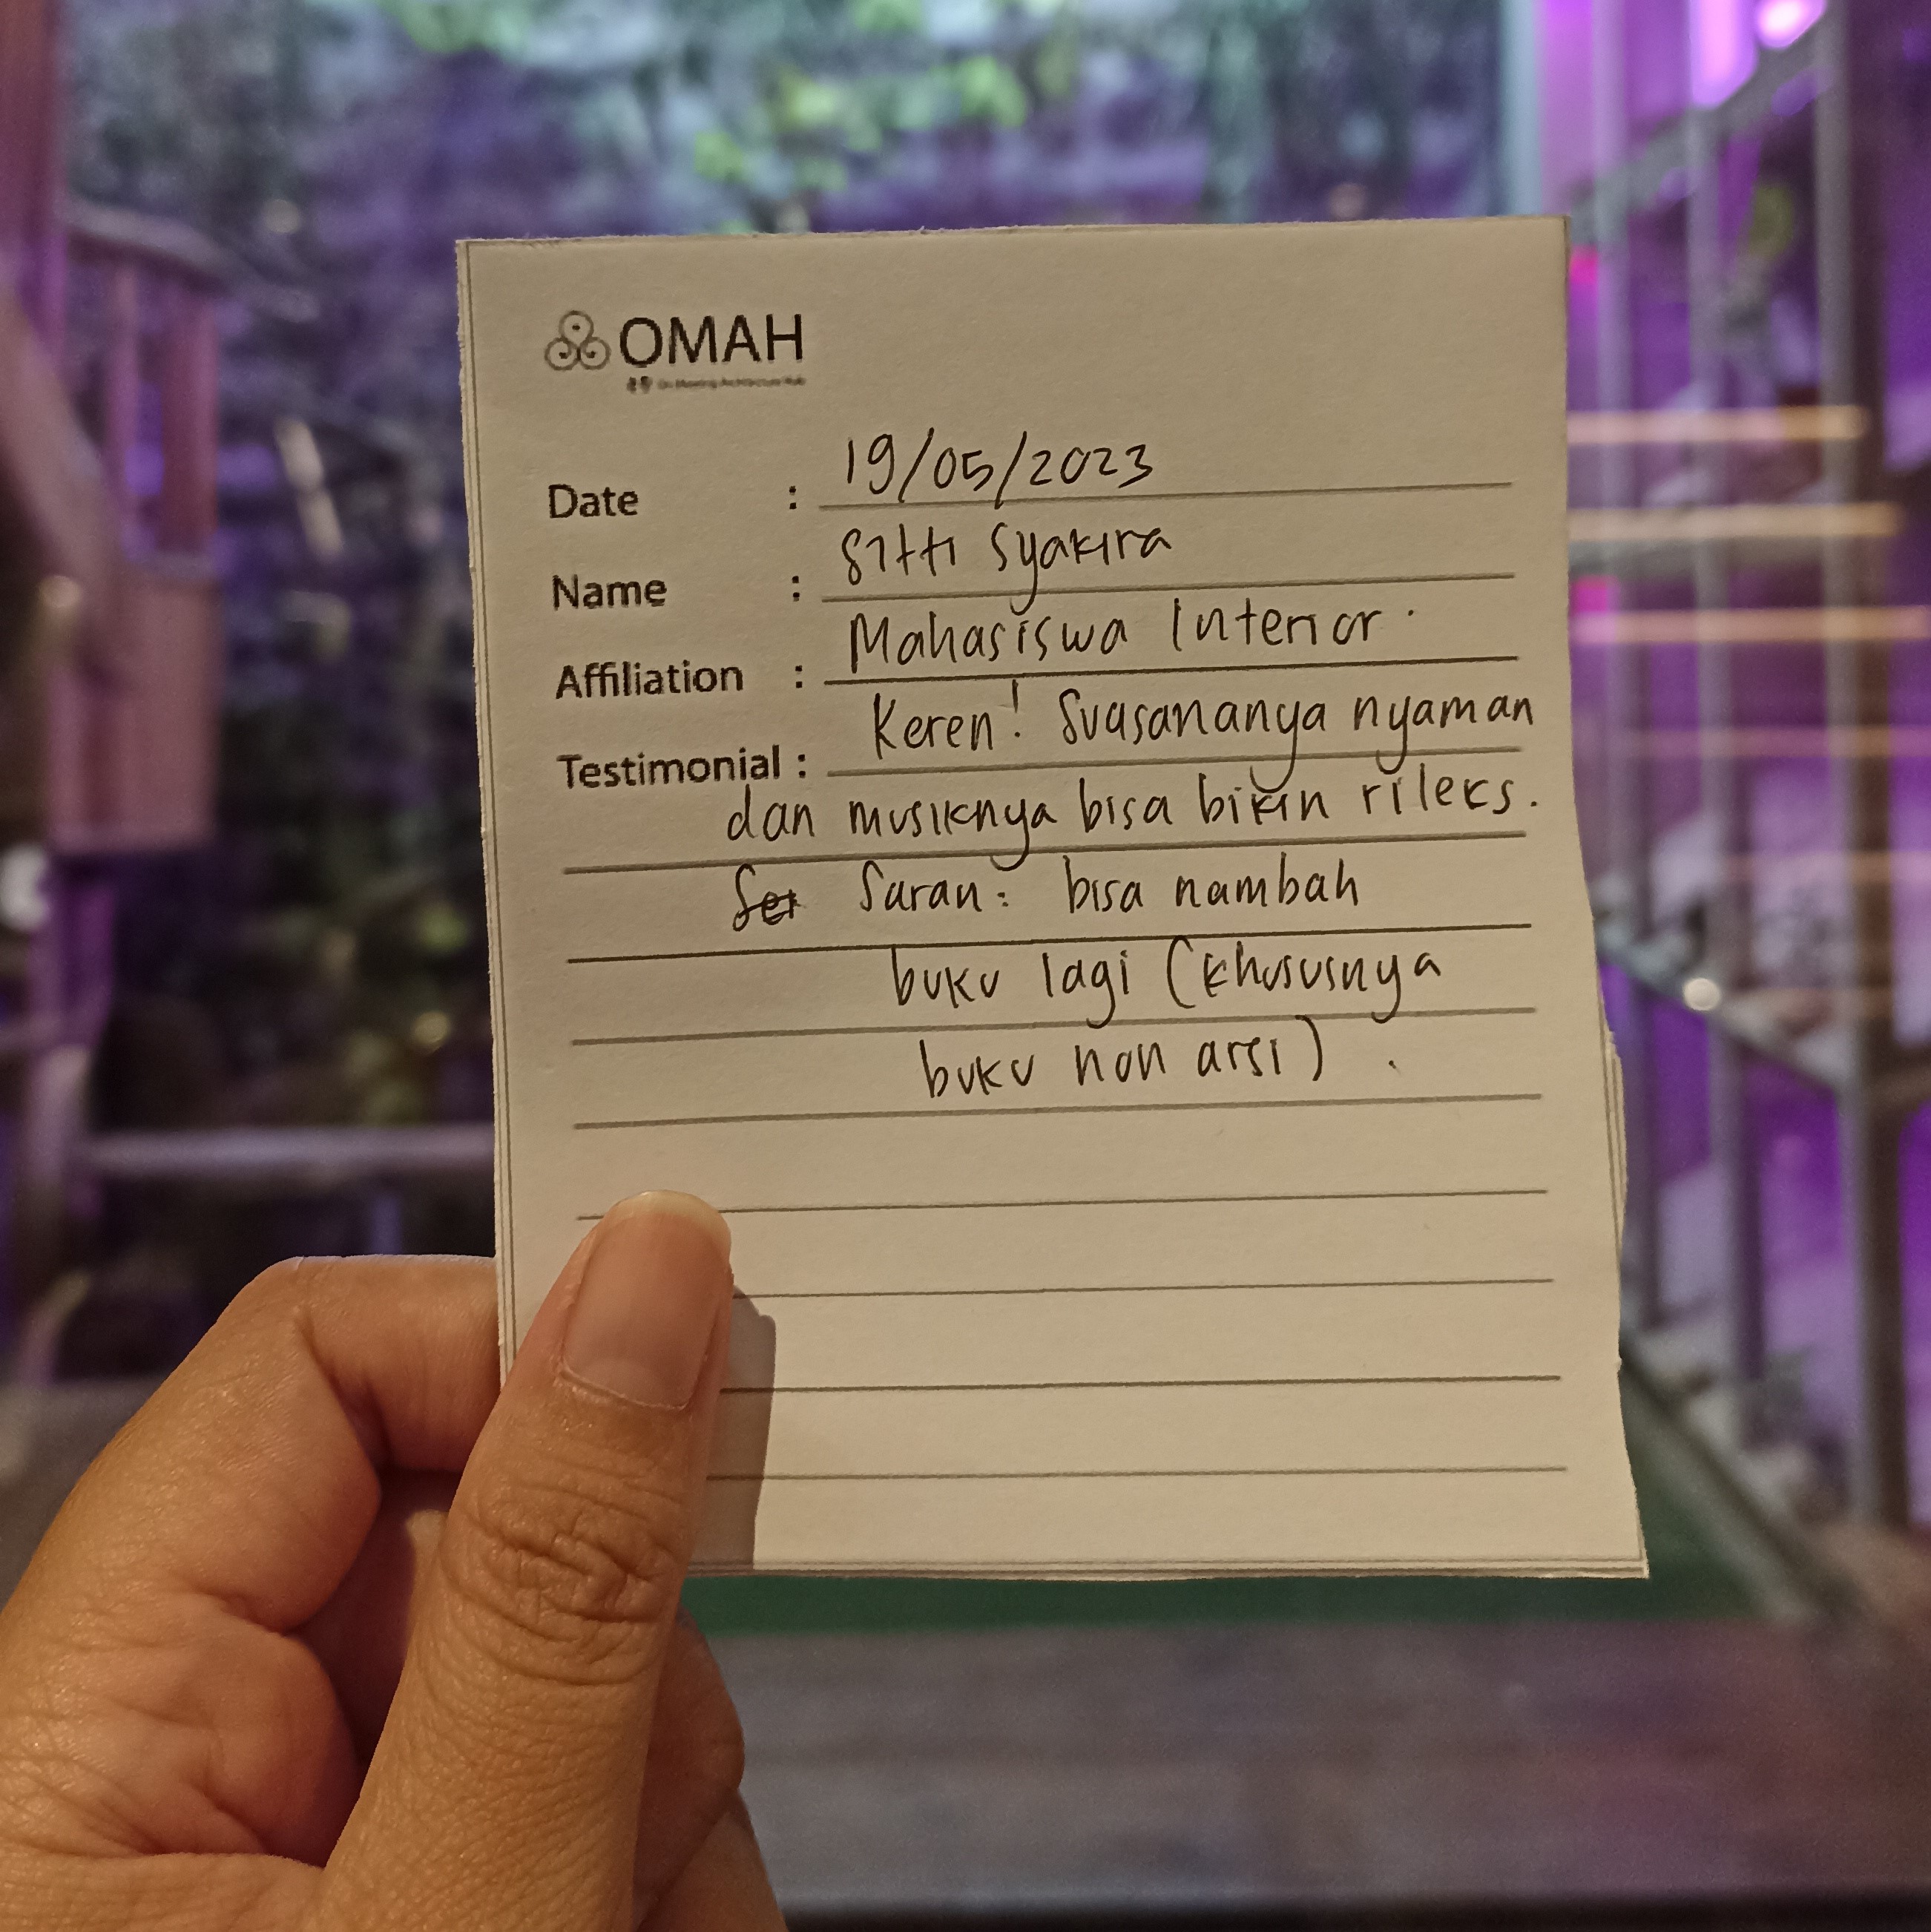 OMAH
On Meeting Architecture Hub
Date : 19/05/2023
Name : Sitti Syakira
Affiliation : Mahasiswa Interior.
Testimonial : Keren! Suasananya nyaman
dan musiknya bisa bikin rileks.
Saran: bisa nambah
buku lagi (khususnya
buku non arsi).